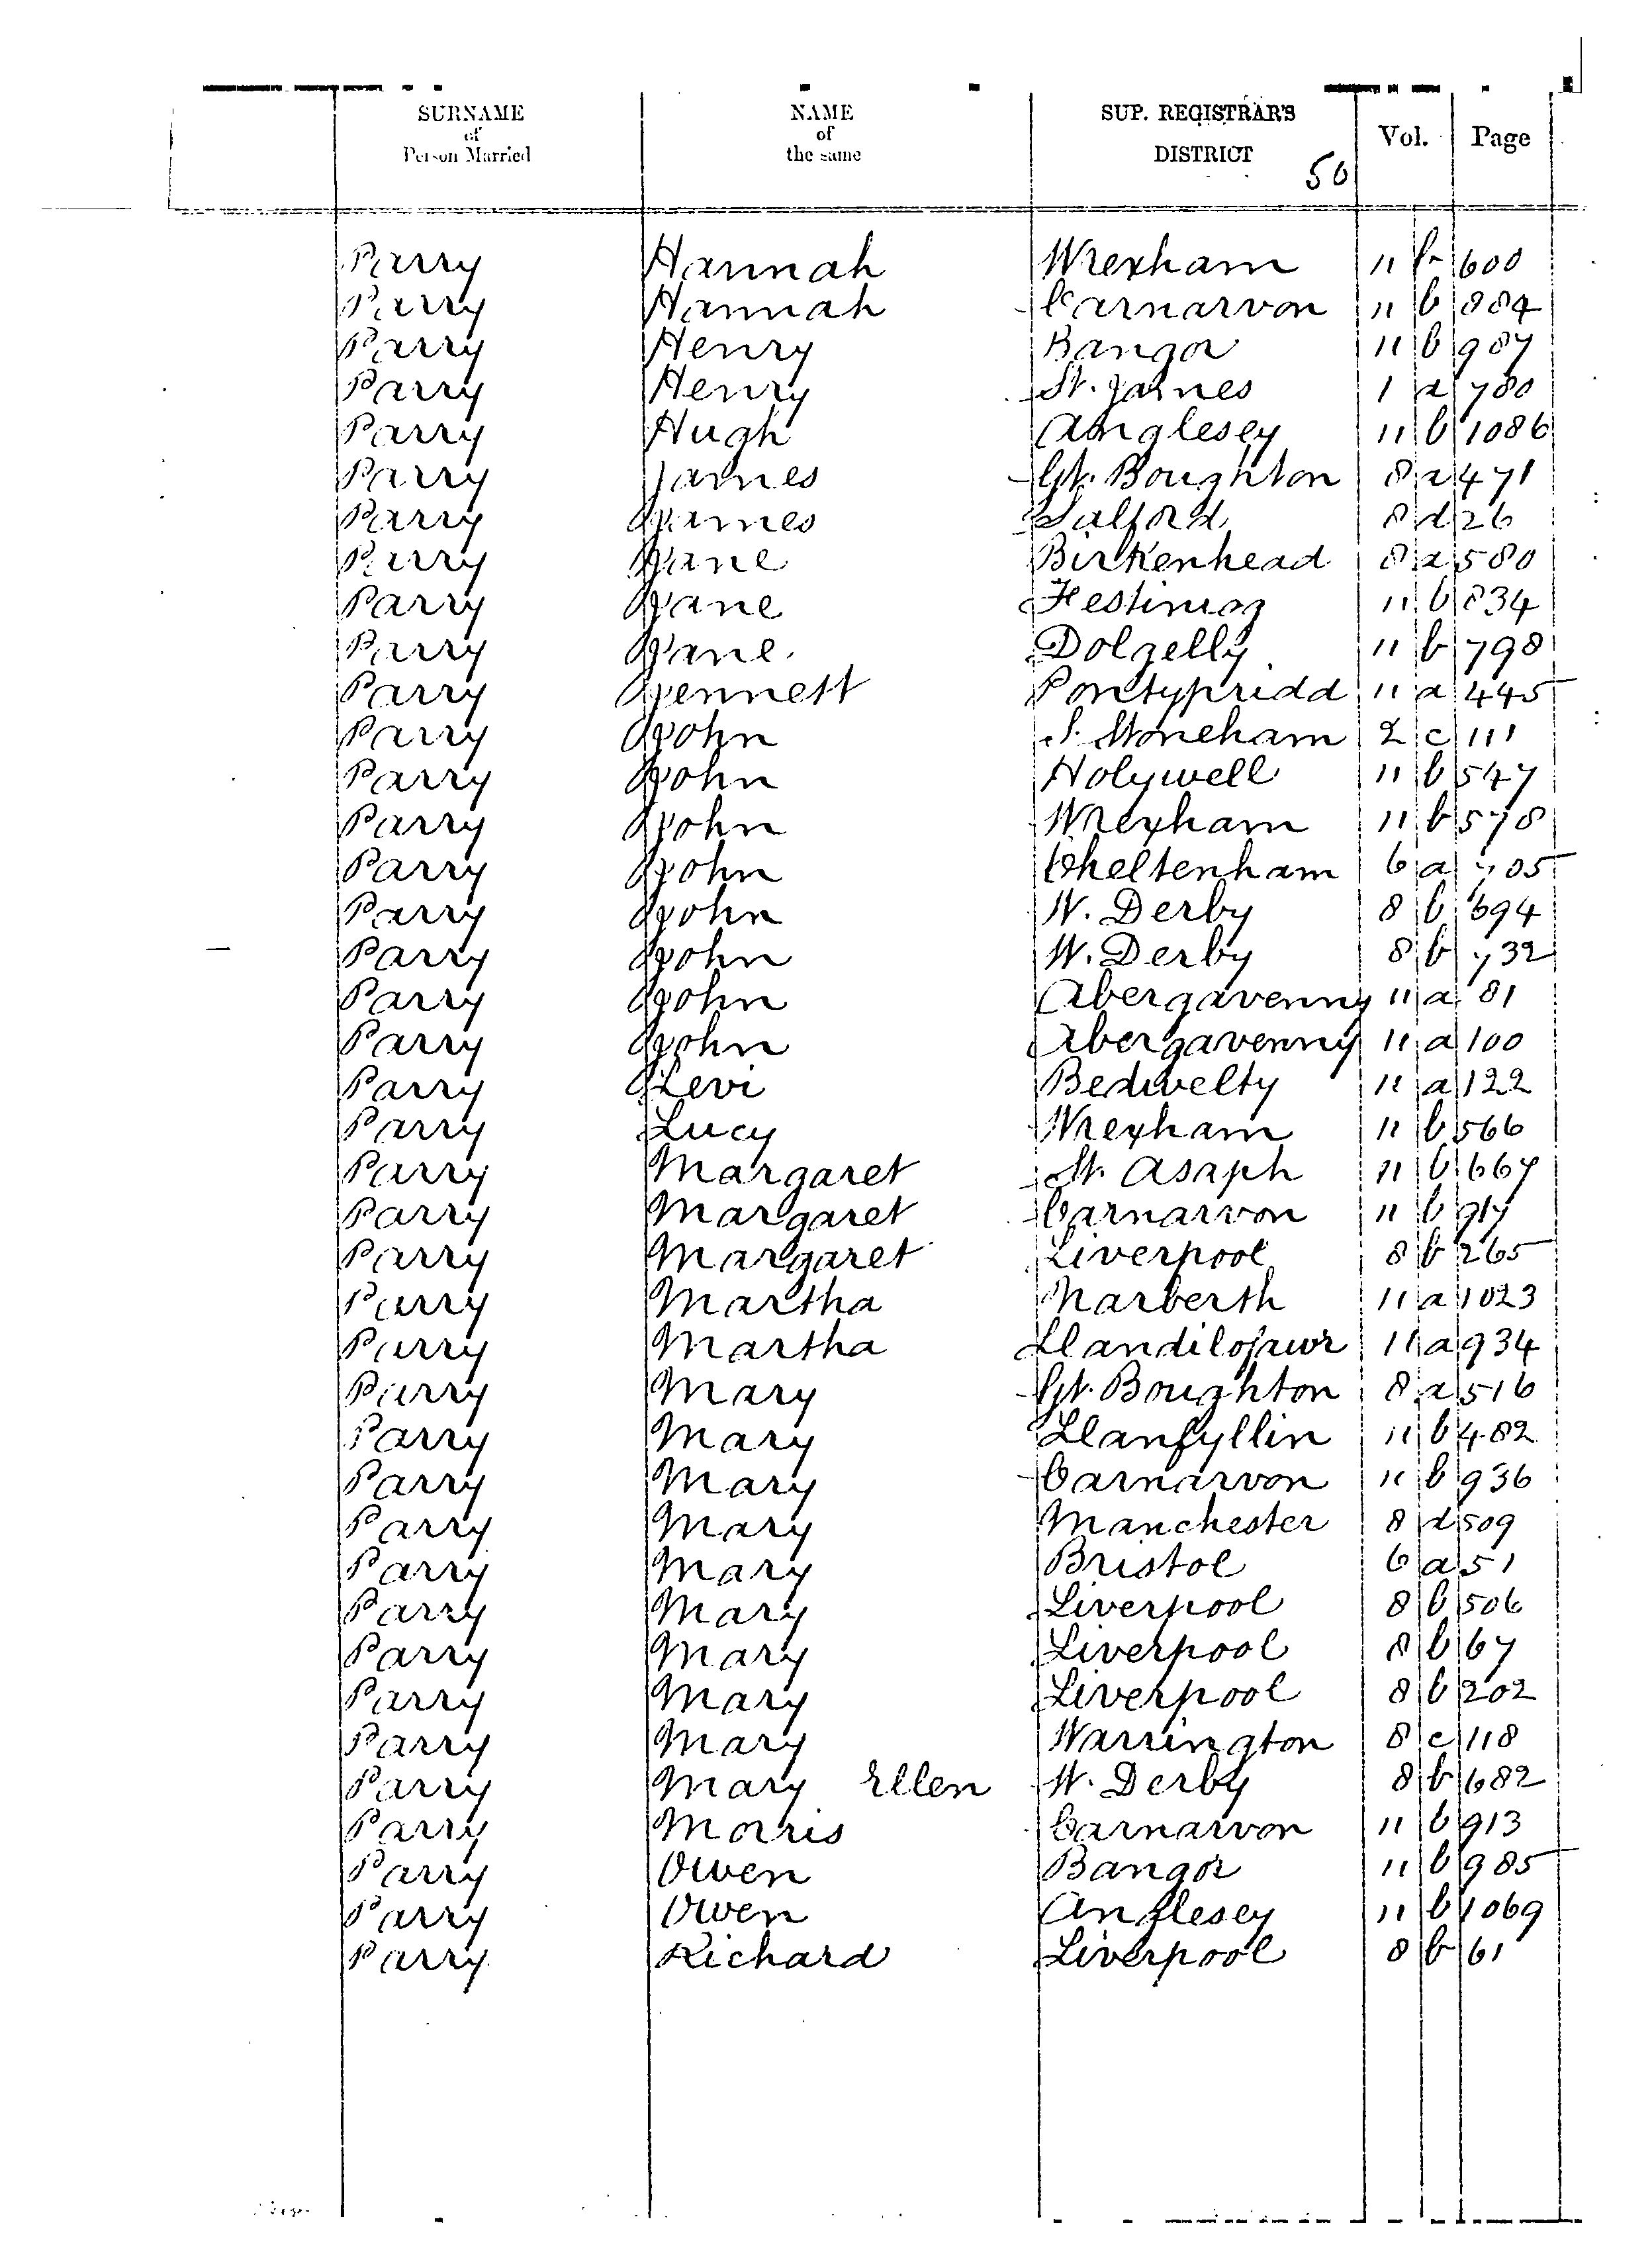 SURNAME of Person Married NAME of the same SUP. REGISTRAR'S DISTRICT Vol. Page
50
Parry Hannah Wrexham 11 b 600
Parry Hannah Carnarvon 11 b 884
Parry Henry Bangor 11 b 987
Parry Henry St. James 1 a 780
Parry Hugh Anglesey 11 b 1086
Parry James Gt. Boughton 8 a 471
Parry James Salford 8 d 26
Parry Jane Birkenhead 8 a 580
Parry Jane Festiniog 11 b 834
Parry Jane Dolgelly 11 b 798
Parry Jennett Pontypridd 11 a 445
Parry John S. Stoneham 2 c 111
Parry John Holywell 11 b 547
Parry John Wrexham 11 b 578
Parry John Cheltenham 6 a 705
Parry John W. Derby 8 b 694
Parry John W. Derby 8 b 732
Parry John Abergavenny 11 a 81
Parry John Abergavenny 11 a 100
Parry Levi Bedwelty 11 a 122
Parry Lucy Wrexham 11 b 566
Parry Margaret St. Asaph 11 b 667
Parry Margaret Carnarvon 11 b 917
Parry Margaret Liverpool 8 b 265
Parry Martha Narberth 11 a 1023
Parry Martha Llandilofawr 11 a 934
Parry Mary Gt. Boughton 8 a 516
Parry Mary Llanfyllin 11 b 482
Parry Mary Carnarvon 11 b 936
Parry Mary Manchester 8 d 509
Parry Mary Bristol 6 a 51
Parry Mary Liverpool 8 b 506
Parry Mary Liverpool 8 b 67
Parry Mary Liverpool 8 b 202
Parry Mary Warrington 8 c 118
Parry Mary Ellen W. Derby 8 b 682
Parry Morris Carnarvon 11 b 913
Parry Owen Bangor 11 b 985
Parry Owen Anglesey 11 b 1069
Parry Richard Liverpool 8 b 61